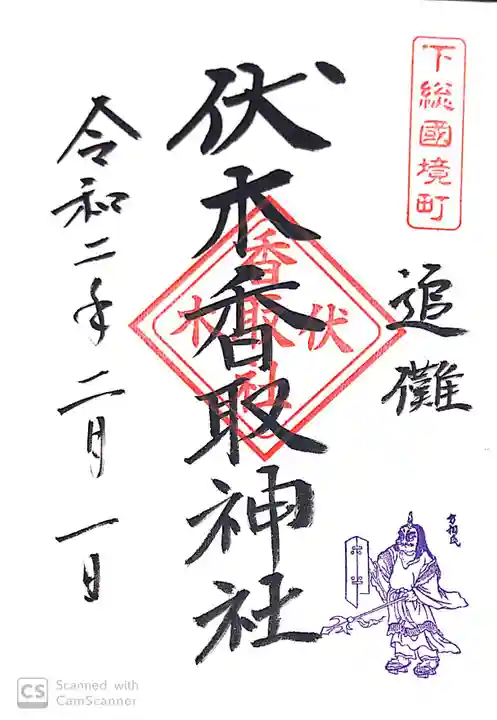 下総國境町
追儺
方相氏
伏木香取神社
香取社
伏木
令和二年二月一日
CS Scanned with
CamScanner